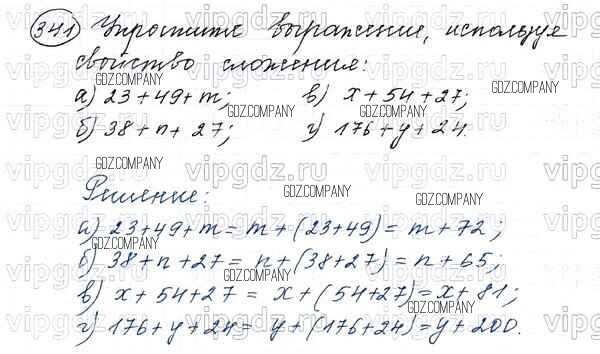 341 Упростите выражение, используя
свойство сложения:
а) 23+49+m; в) x+54+27;
б) 38+n+27; г) 176+y+24.
Решение:
а) 23+49+m = m+(23+49) = m+72;
б) 38+n+27 = n+(38+27) = n+65;
в) x+54+27 = x+(54+27) = x+81;
г) 176+y+24 = y+(176+24) = y+200.
vipgdz.ru
GDZ.COMPANY